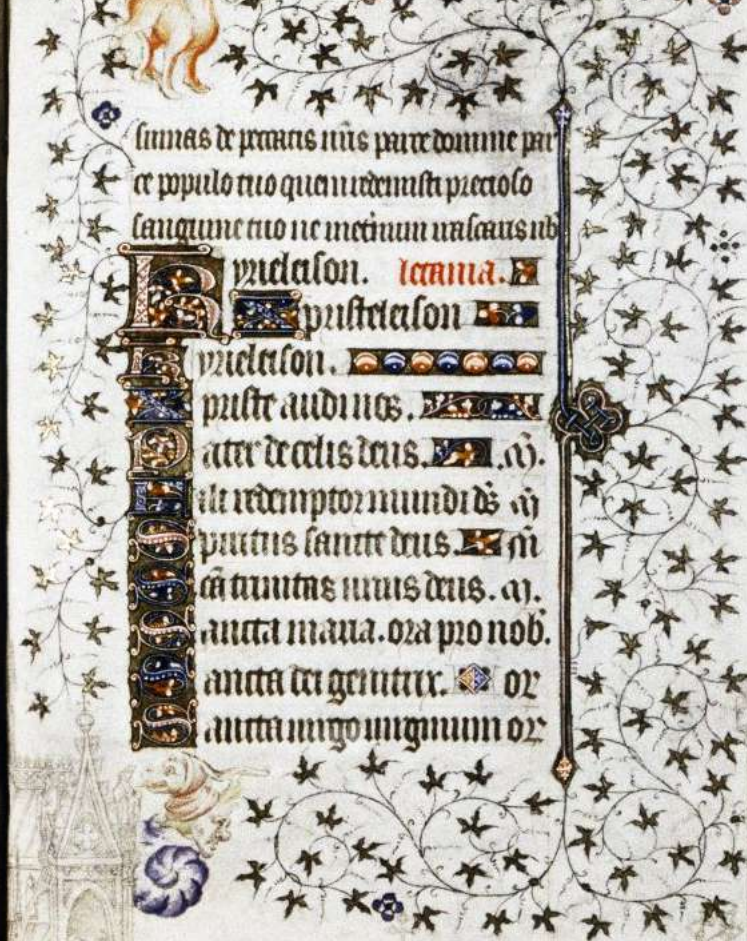 sumas de peccatis nr̄is parce domine par
ce populo tuo quem redemisti precioso
sanguine tuo ne ineternum irascaris nob̄
Kyrieleison. letania.
Xpristeleison
Kyrieleison.
Xpriste audi nos.
Pater de celis deus. .m̄.
Fili redemptor mundi ds̄ m̄
Spiritus sancte deus. m̄
Scā trinitas unus deus. m̄.
Sancta maria. ora pro nob̄.
Sancta dei genitrix. or
Sancta virgo virginum or